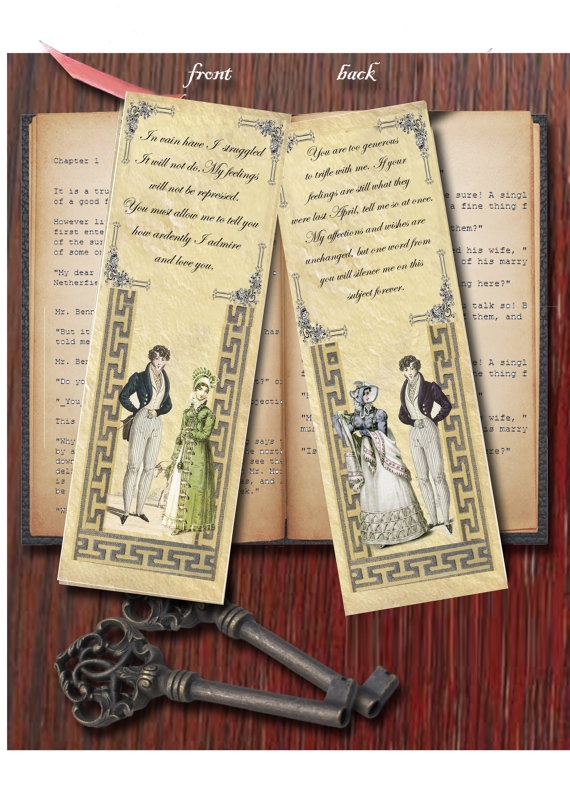 front
back
In vain have I struggled
It will not do. My feelings
will not be repressed.
You must allow me to tell you
how ardently I admire
and love you.
You are too generous
to trifle with me. If your
feelings are still what they
were last April, tell me so at once.
My affections and wishes are
unchanged, but one word from
you will silence me on this
subject forever.
Chapter 1
It is a tru
of a good f
However li
first ente
of the sur
of some on
"My dear
Netherfie
Mr. Benn
"But it
told me
Mr. Benn
"Do you
"_You
This
"Why
by a
down
is
be
sure! A singl
a fine thing f
em?"
ed his wife, "
of his marry
ng here?"
talk so! B
f them, and
wife, "
marry
"Is